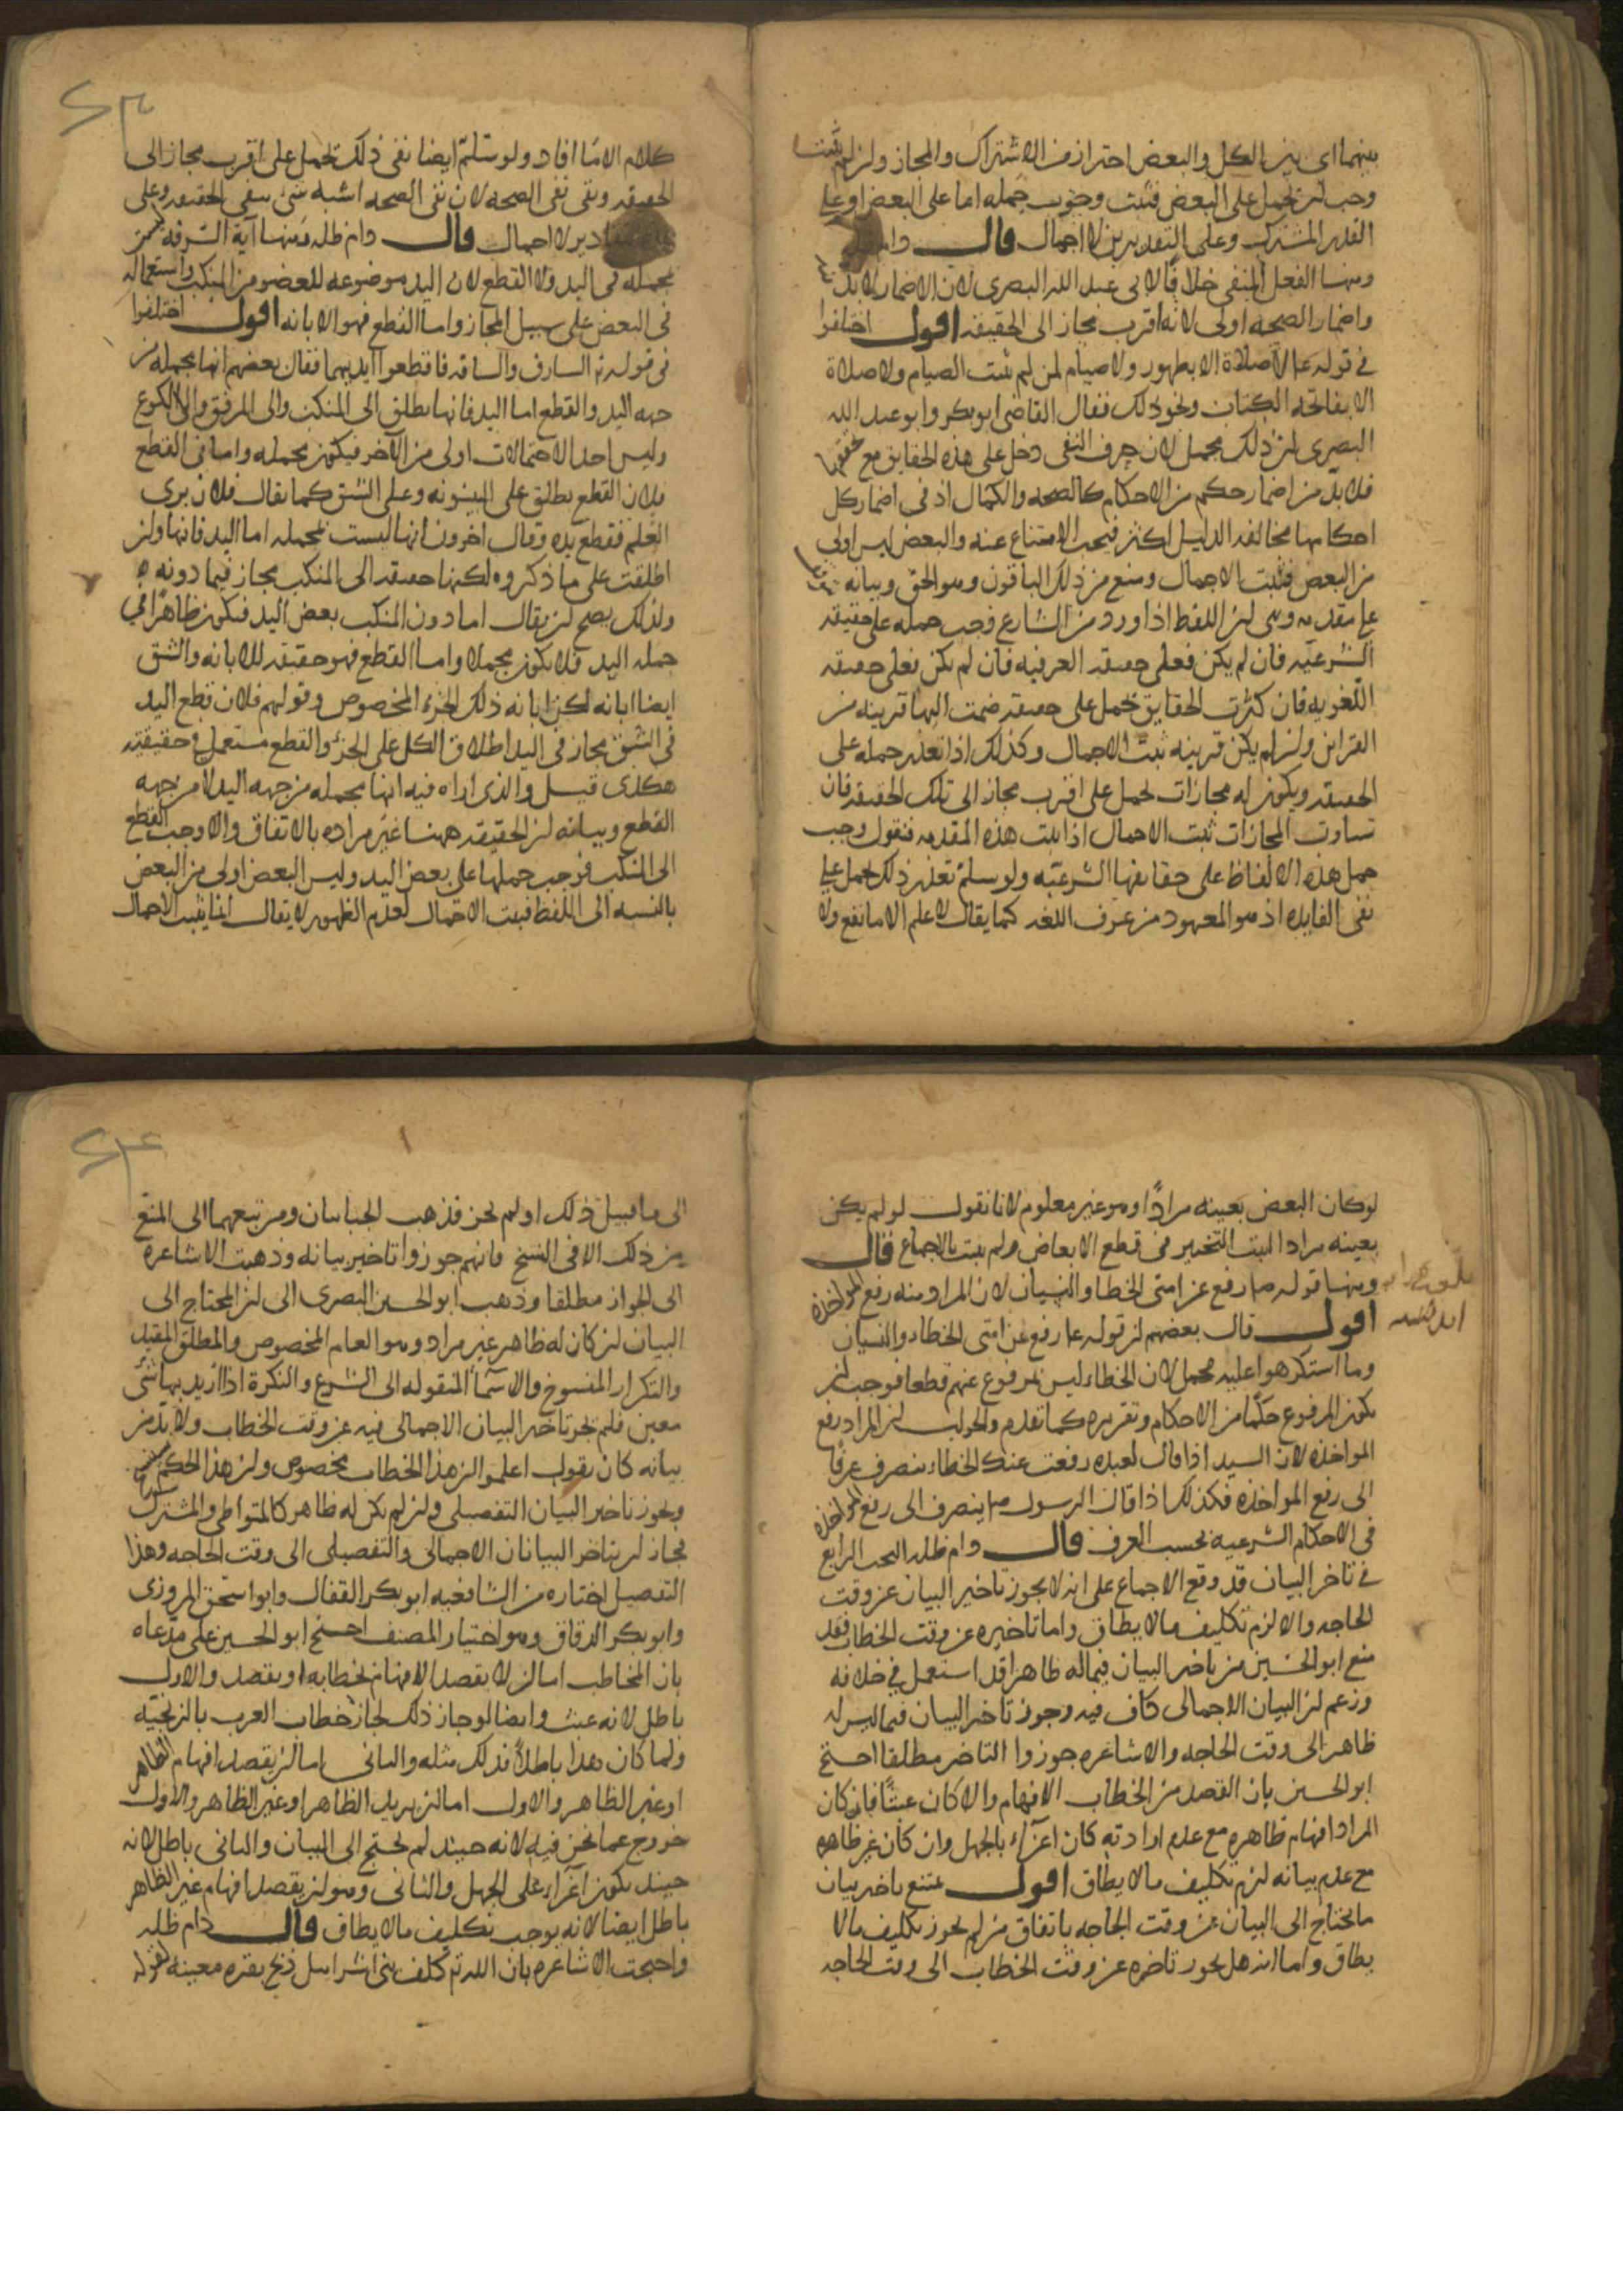 بينهما اى بين الكل والبعض احترازا من الاشتراك والمجاز ولئن لم يثبت
وجب لن يحمل على البعض فثبت وجوب حمله اما على البعض او على
القدر المشترك وعلى التقديرين لا اجمال قال دام
ومنها الفعل المنفى خلافا لابى عبد الله البصرى لان الاضمار لا بد منه
واضمار الصحه اولى لانه اقرب مجاز الى الحقيقه اقول اختلفوا
فى قوله عم لا صلاة الا بطهور ولا صيام لمن لم يثبت الصيام ولا صلاة
الا بفاتحة الكتاب ونحو ذلك فقال القاضى ابو بكر وابو عبد الله
البصرى لن ذلك مجمل لان حرف النفى دخل على هذه الحقايق مع تحققها
فلا بد من اضمار حكم من الاحكام كالصحه والكمال اذ فى اضمار كل
احكامها مخالفه الدليل اكثر فيجب الامتناع عنه والبعض ليس اولى
من البعض فثبت الاجمال ومنع من ذلك الباقون وهو الحق وبيانه
على مقدمه وهى لن اللفظ اذا ورد من الشارع وجب حمله على حقيقته
الشرعيه فان لم يكن فعلى حقيقته العرفيه فان لم يكن فعلى حقيقته
اللغويه فان كثرت الحقايق حمل على حقيقه ضمت اليها قرينه من
القراين ولن لم يكن قرينه ثبت الاجمال وكذلك اذا تعذر حمله على
الحقيقه ويكون له مجازات يحمل على اقرب مجاز الى تلك الحقيقه فان
تساوت المجازات ثبت الاجمال اذا ثبت هذه المقدمه فنقول وجب
حمل هذه الالفاظ على حقايقها الشرعيه ولو سلم تعذر ذلك لحمل على
نفى الفايده اذ هو المعهود من عرف اللغه كما يقال لا علم الا ما نفع ولا
كلام الا ما افاد ولو سلم ايضا نفى ذلك تحمل على اقرب مجاز الى
الحقيقه وبقى نفى الصحه لان نفى الصحه اشبه شئ بنفى الحقيقه وعلى
التقادير لا اجمال قال دام ظله ومنها آية السرقه ليس
بمجمله فى اليد ولا القطع لان اليد موضوعه للعضو من المنكب واستعماله
فى البعض على سبيل المجاز واما القطع فهو الابانه اقول اختلفوا
فى قوله تع السارق والسارقه فاقطعوا ايديهما فقال بعضهم انها مجمله من
جهه اليد والقطع اما اليد فانها يطلق الى المنكب والى المرفق والى الكوع
وليس احد الاحتمالات اولى من الآخر فيكون مجمله واما فى القطع
فلان القطع يطلق على البينونه وعلى الشق كما يقال فلان برى
القلم فقطع يده وقال اخرون انها ليست بمجمله اما اليد فانها ولن
اطلقت على ما ذكروه لكنها حقيقه الى المنكب مجاز فيما دونه
ولذلك يصح لن يقال اما دون المنكب بعض اليد فيكون ظاهرا فى
جمله اليد فلا يكون مجملا واما القطع فهو حقيقه للابانه والشق
ايضا ابانه لكن ابانه ذلك الجزء المخصوص وقولهم فلان قطع اليد
فى الشق مجاز فى اليد اطلاق الكل على الجزء والقطع مستعمل فى حقيقته
هكذى قيل والذى اراه فيه انها مجمله من جهه اليد لا من جهه
القطع وبيانه لن الحقيقه ههنا غير مراده بالاتفاق والا وجب القطع
الى المنكب فوجب حملها على بعض اليد وليس البعض اولى من البعض
بالنسبه الى اللفظ فيثبت الاحتمال لعدم الظهور لا يقال انما يثبت الاجمال
لو كان البعض بعينه مرادا وهو غير معلوم لانا نقول لو لم يكن
بعينه مرادا لثبت التخيير فى قطع الابعاض ولم يثبت بالاجماع قال
ومنها قوله صم رفع عن امتى الخطا والنسيان لان المراد منه رفع المواخذه
اقول قال بعضهم لن قوله عم رفع عن امتى الخطاء والنسيان
وما استكرهوا عليه مجمل لان الخطاء ليس بمرفوع عنهم قطعا فوجب لن
يكون المرفوع حكما من الاحكام وتقريره كما تقدم والجواب لن المراد رفع
المواخذه لان السيد اذا قال لعبده رفعت عنك الخطاء ينصرف عرفا
الى رفع المواخذه فكذلك اذا قال الرسول صم ينصرف الى رفع المواخذه
فى الاحكام الشرعيه بحسب العرف قال دام ظله البحث الرابع
فى تاخر البيان قد وقع الاجماع على انه لا يجوز تاخير البيان عن وقت
الحاجه والا لزم تكليف ما لا يطاق واما تاخيره عن وقت الخطاب فقد
منع ابو الحسين من تاخير البيان فيما له ظاهر قد استعمل فى خلافه
وزعم لن البيان الاجمالى كاف فيه وجوز تاخير البيان فيما ليس له
ظاهر الى وقت الحاجه والاشاعره جوزوا التاخير مطلقا احتج
ابو الحسين بان القصد من الخطاب الافهام والا كان عبثا فان كان
المراد افهام ظاهره مع عدم ارادته كان اغراء بالجهل وان كان غير ظاهره
مع عدم بيانه لزم تكليف ما لا يطاق اقول يمتنع تاخير بيان
ما يحتاج الى البيان عن وقت الحاجه باتفاق من لم يجوز تكليف ما لا
يطاق واما انه هل يجوز تاخيره عن وقت الخطاب الى وقت الحاجه
الى ما قبيل ذلك او لم يجز فذهب الجباييان ومن تبعهما الى المنع
من ذلك الا فى النسخ فانهم جوزوا تاخير بيانه وذهبت الاشاعره
الى الجواز مطلقا وذهب ابو الحسين البصرى الى لن المحتاج الى
البيان لن كان له ظاهر غير مراد وهو العام المخصوص والمطلق المقيد
والتكرار المنسوخ والاسماء المنقوله الى الشرع والنكرة اذا اريد بها شئ
معين فلم يجز تاخير البيان الاجمالى فيه عن وقت الخطاب ولا بد من
بيانه كان يقول اعلموا لن هذا الخطاب مخصوص ولن هذا الحكم سينسخ
ويجوز تاخير البيان التفصيلى ولن لم يكن له ظاهر كالمتواطى والمشترك
فجاز لن يتاخر البيانان الاجمالى والتفصيلى الى وقت الحاجه وهذا
التفصيل اختاره من الشافعيه ابو بكر القفال وابو اسحق المروزى
وابو بكر الدقاق وهو اختيار المصنف احتج ابو الحسين على مدعاه
بان المخاطب اما لن لا يقصد الافهام بخطابه او يقصد والاول
باطل لانه عبث وايضا لو جاز ذلك لجاز خطاب العرب بالزنجيه
ولما كان هذا باطلا فذلك مثله والثانى اما لن يقصد افهام الظاهر
او غير الظاهر والاول اما لن يريد الظاهر او غير الظاهر والاول
خروج عما نحن فيه لانه حينئذ لم يحتج الى البيان والثانى باطل لانه
حينئذ يكون اغراء على الجهل والثانى وهو لن يقصد افهام غير الظاهر
باطل ايضا لانه يوجب تكليف ما لا يطاق قال دام ظله
واحتجت الاشاعره بان الله تع كلف بنى اسرائيل ذبح بقره معينه لقوله